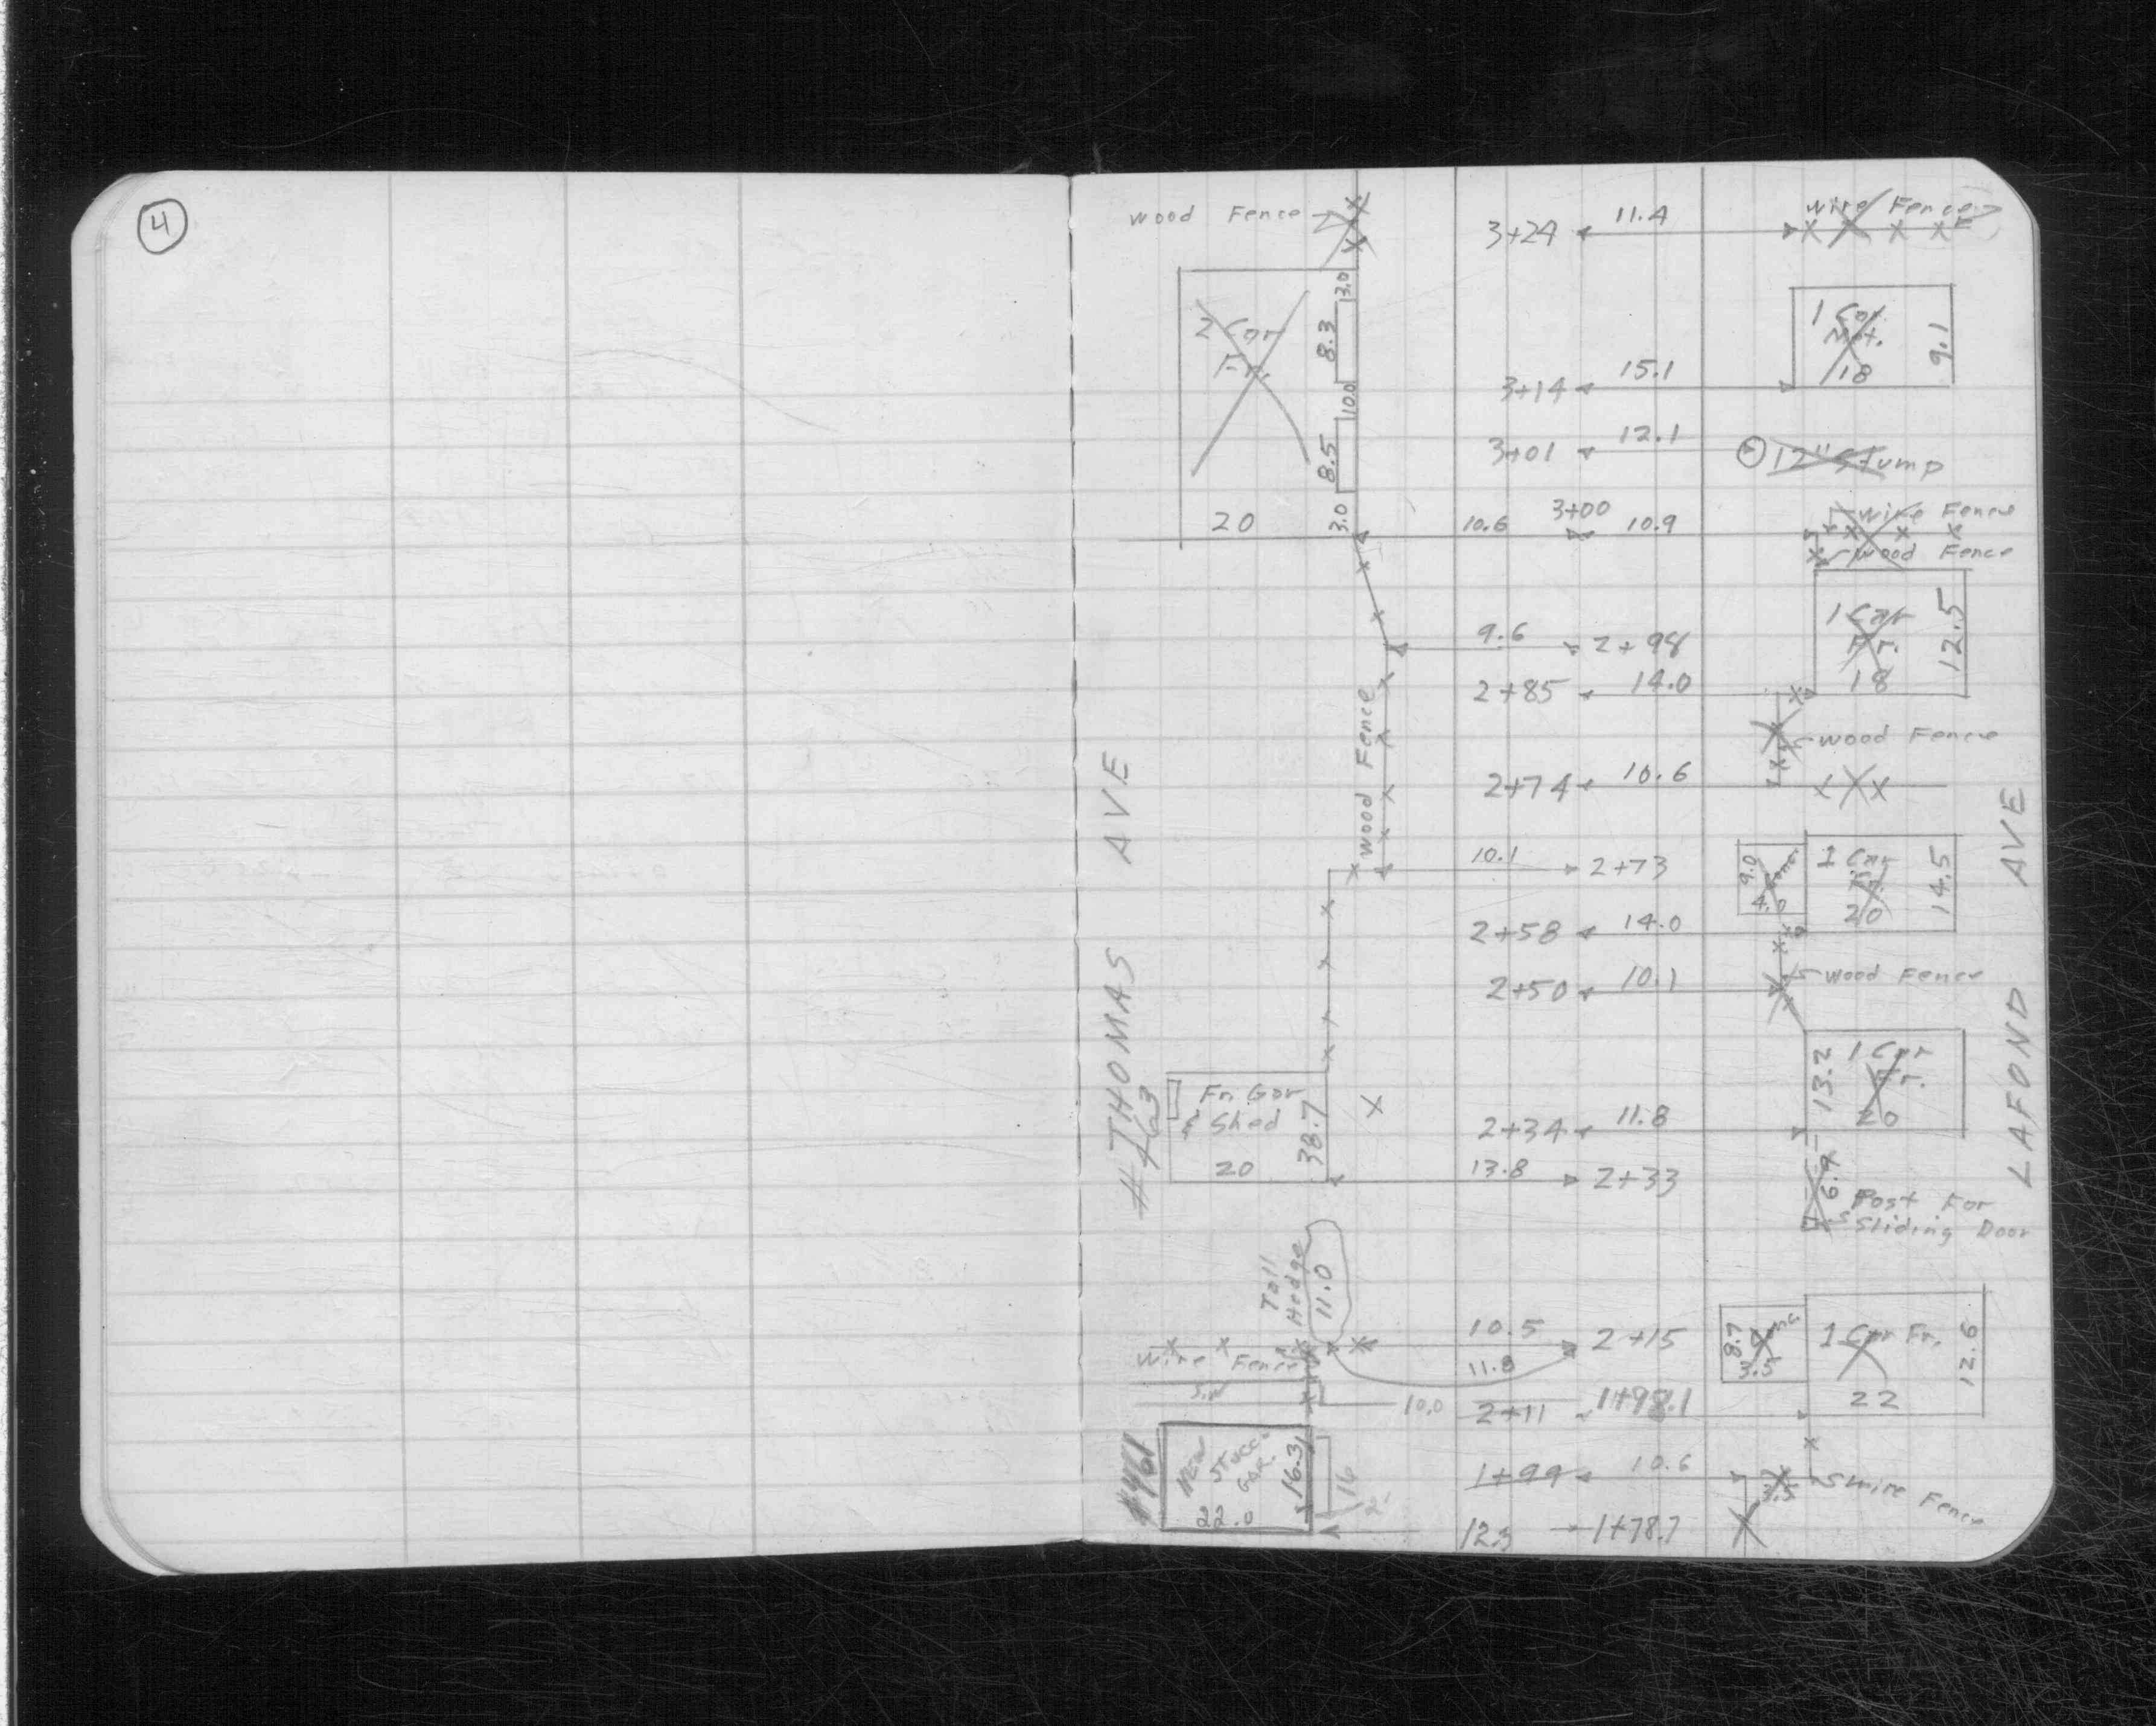 4
wood Fence
3+24
11.4
wire Fence
2 Car
Fr.
20
3.0
8.3
10.0
8.5
3.0
1 Car
Met.
18
9.1
3+14
15.1
3+01
12.1
12" Stump
10.6
3+00
10.9
wire Fence
wood Fence
1 Car
Fr.
18
12.5
9.6
2+98
2+85
14.0
wood Fence
wood Fence
2+74
10.6
THOMAS AVE
LAFOND AVE
10.1
2+73
9.0
4.0
1 Car
20
14.5
2+58
14.0
2+50
10.1
wood Fence
#463
Fr. Gar
& Shed
20
38.7
13.2
1 Car
Fr.
20
2+34
11.8
13.8
2+33
6.9
Post For
Sliding Door
Tall
Hedge
11.0
10.5
2+15
11.8
Wire Fence
S.W
10.0
8.7
3.5
1 Car Fr.
22
12.6
2+11
1+98.1
#461
NEW
STUCCO
GAR.
22.0
16.3
16
1+99
10.6
3.5
wire Fence
12.3
1+78.7